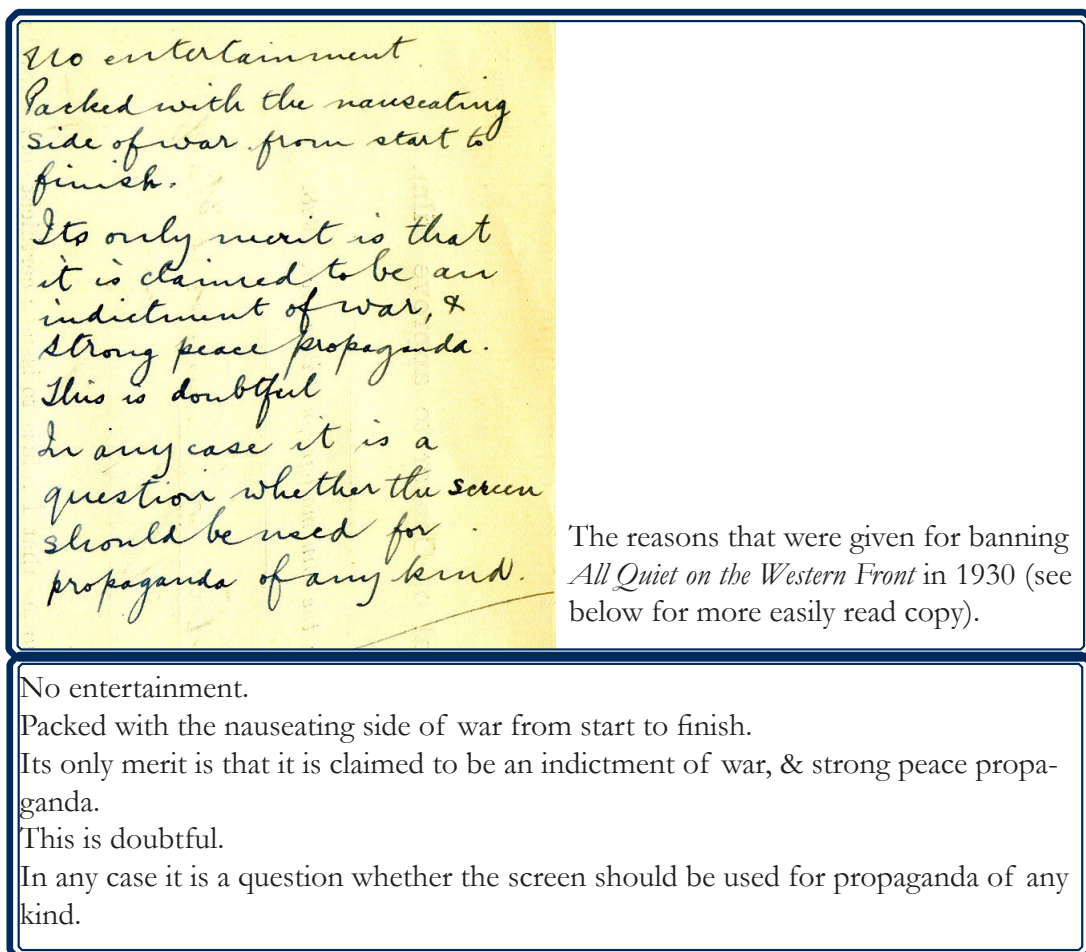 No entertainment.
Packed with the nauseating
side of war from start to
finish.
Its only merit is that
it is claimed to be an
indictment of war, &
strong peace propaganda.
This is doubtful
In any case it is a
question whether the screen
should be used for
propaganda of any kind.
The reasons that were given for banning
All Quiet on the Western Front in 1930 (see
below for more easily read copy).
No entertainment.
Packed with the nauseating side of war from start to finish.
Its only merit is that it is claimed to be an indictment of war, & strong peace propa-
ganda.
This is doubtful.
In any case it is a question whether the screen should be used for propaganda of any
kind.